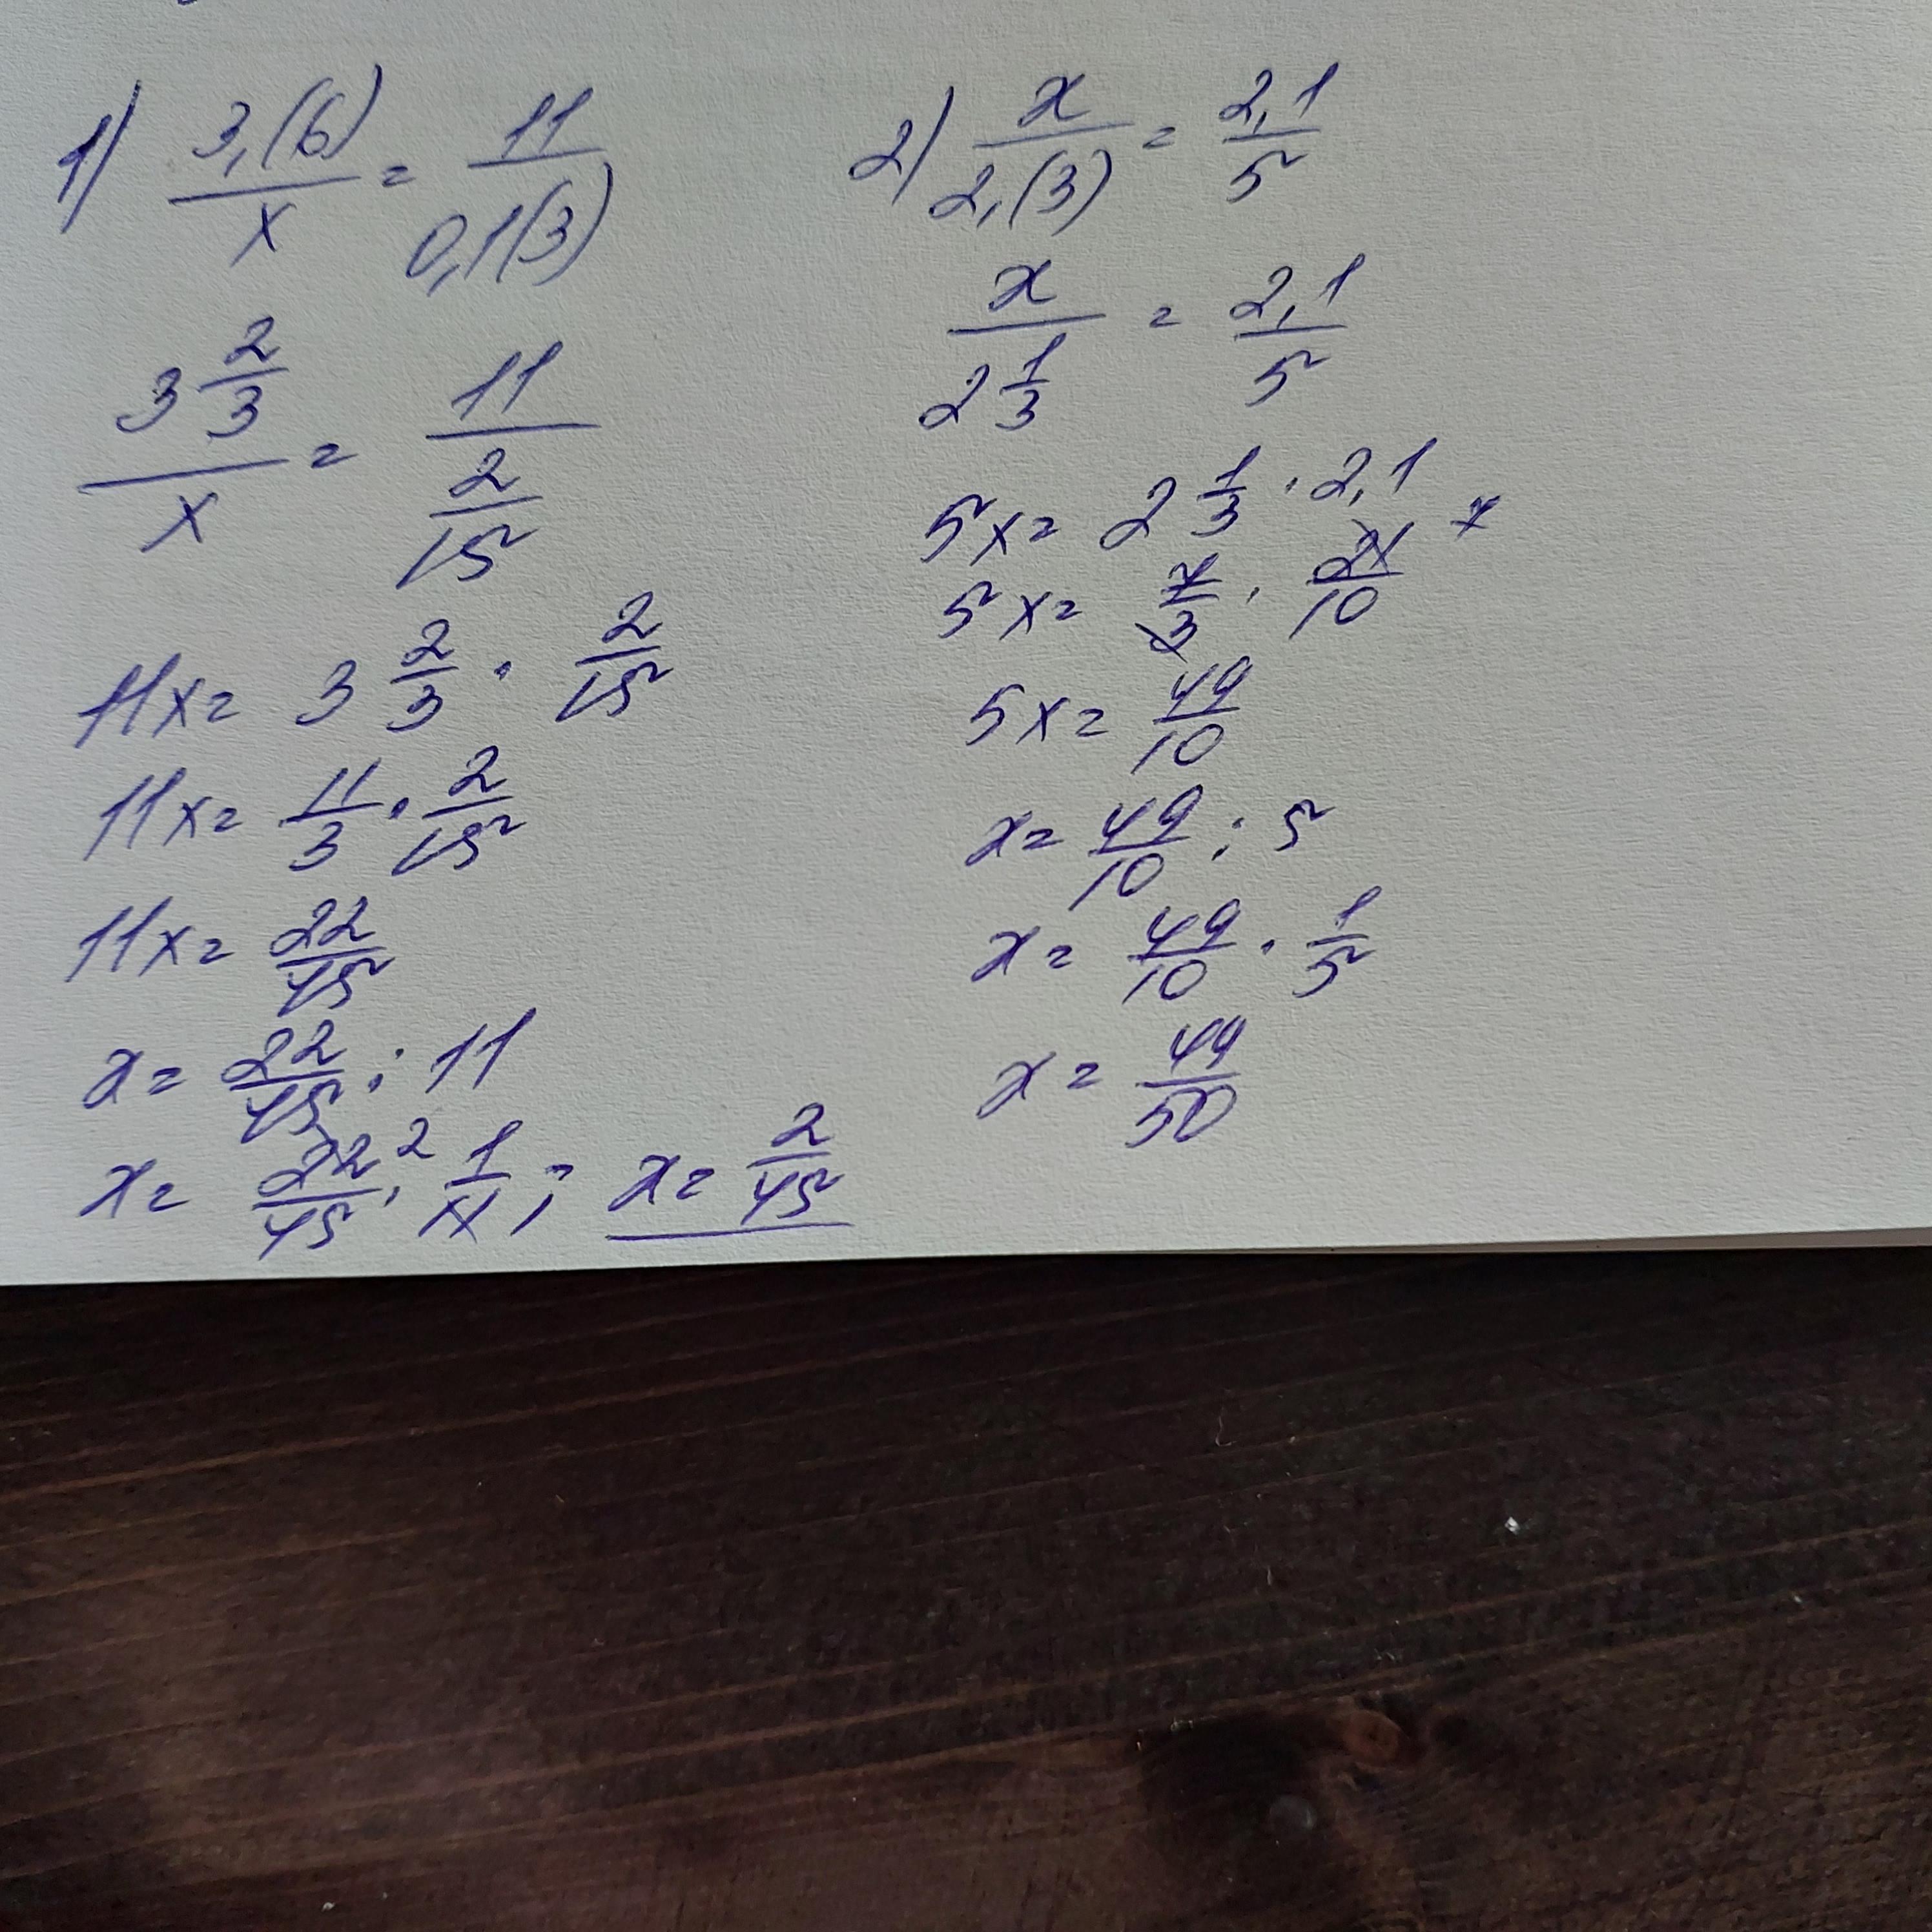 1) 3,(6)/x = 11/0,1(3)
3 2/3 / x = 11 / 2/15
11x = 3 2/3 · 2/15
11x = 11/3 · 2/15
11x = 22/45
x = 22/45 : 11
x = 22/45 2 · 1/11 ; x = 2/45
2) x/2,(3) = 2,1/5
x / 2 1/3 = 2,1/5
5x = 2 1/3 · 2,1
5x = 7/3 · 21/10 7
5x = 49/10
x = 49/10 : 5
x = 49/10 · 1/5
x = 49/50